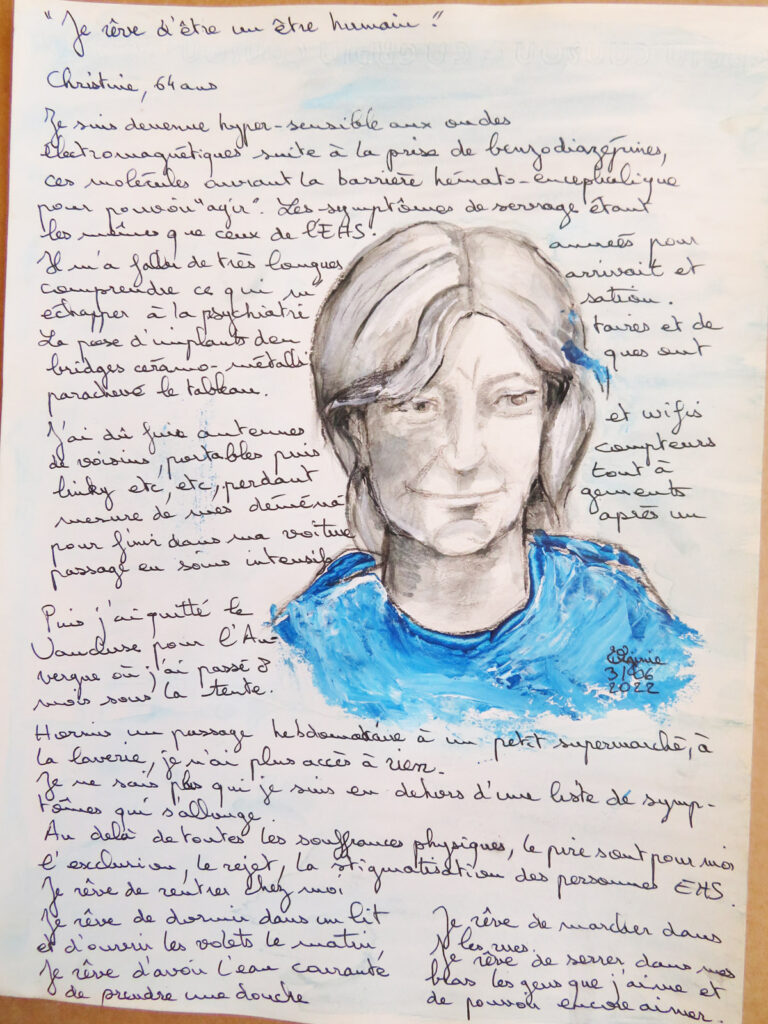 "Je rêve d'être un être humain !"
Christine, 64 ans
Je suis devenue hyper-sensible aux ondes
électromagnétiques suite à la prise de benzodiazépines,
ces molécules ouvrant la barrière hémato-encéphalique
pour pouvoir "agir". Les symptômes de sevrage étant
les mêmes que ceux de l'EHS.
Il m'a fallu de très longues années pour
comprendre ce qui m' arrivait et
échapper à la psychiatri sation.
La pose d'implants den taires et de
bridges céramo-métalli ques ont
parachevé le tableau.
J'ai dû fuir antennes et wifis
de voisins, portables puis compteurs
linky etc, etc, perdant tout à
mesure de mes déména gements
pour finir dans ma voiture après un
passage en soins intensifs
Puis j'ai quitté le
Vaucluse pour l'Au-
vergne où j'ai passé 8
mois sous la tente.
Virginie
3/06
2022
Hormis un passage hebdomadaire à un petit supermarché, à
la laverie, je n'ai plus accès à rien.
Je ne sais plus qui je suis en dehors d'une liste de symp-
tômes qui s'allonge.
Au delà de toutes les souffrances physiques, le pire sont pour moi
l'exclusion, le rejet, la stigmatisation des personnes EHS.
Je rêve de rentrer chez moi
Je rêve de dormir dans un lit
et d'ouvrir les volets le matin
Je rêve d'avoir l'eau courante
de prendre une douche
Je rêve de marcher dans
les rues.
Je rêve de serrer dans mes
bras les gens que j'aime et
de pouvoir encore aimer.